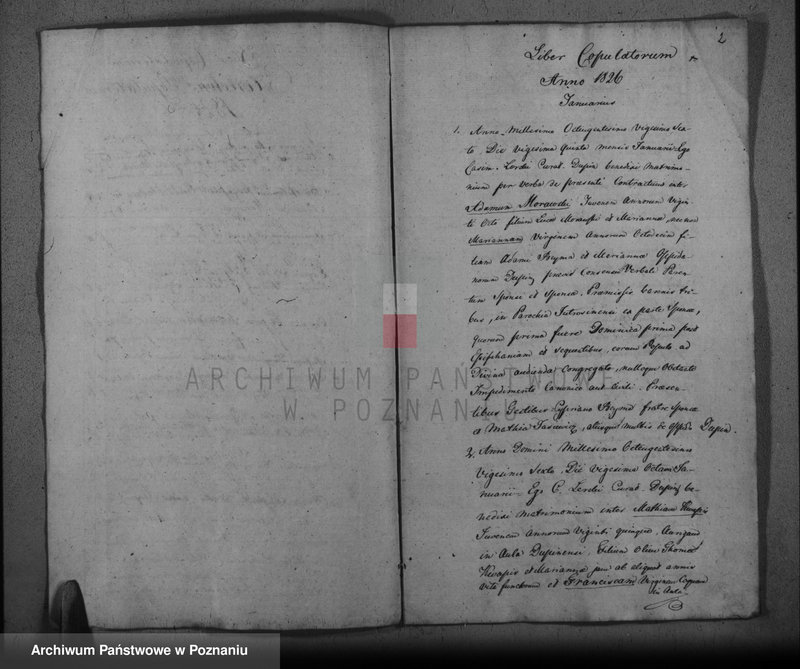 2
Liber Copulatorum
Anno 1826
Januarius
1. Anno Millesimo Octingentesimo Vigesimo Sex-
to Die vigesima quinta mensis Januarii Ego
Casim. Curat. benedixi matrimo-
nium per verba de praesenti Contractum inter
Adamum Morawski Juvenem Annorum Vigin-
ti Octo filium Lucae Morawski et Mariannae, necnon
Mariannam Virginem Annorum Octodecim fi-
liam Adami et Mariannae Oppida-
norum praevio Consensu Verbali Paren-
tum Sponsi et Sponsae, Praemissis bannis tri-
bus, in Parochia Jutrosinensi ex parte Sponsae,
quorum prima fuere Dominica prima post
Epiphaniam et sequentibus, coram Populo ad
Divina audienda Congregato, nulloque Obstante
Impedimento Canonico aut Civili. Praesen-
tibus Testibus Cypriano fratre Sponsae
et Mathia aliisque multis de Oppido
2. Anno Domini Millesimo Octingentesimo
Vigesimo Sexto, Die Vigesima Octava Ja-
nuarii. Ego C. Curat. be-
nedixi matrimonium inter Mathiam
Juvenem Annorum Viginti quinque,
in Aula Filium olim Thomae
et Mariannae ab aliquot annis
vita functorum et Franciscam Virginem
in Aula
ARCHIWUM PAŃSTWOWE
W POZNANIU
Archiwum Państwowe w Poznaniu